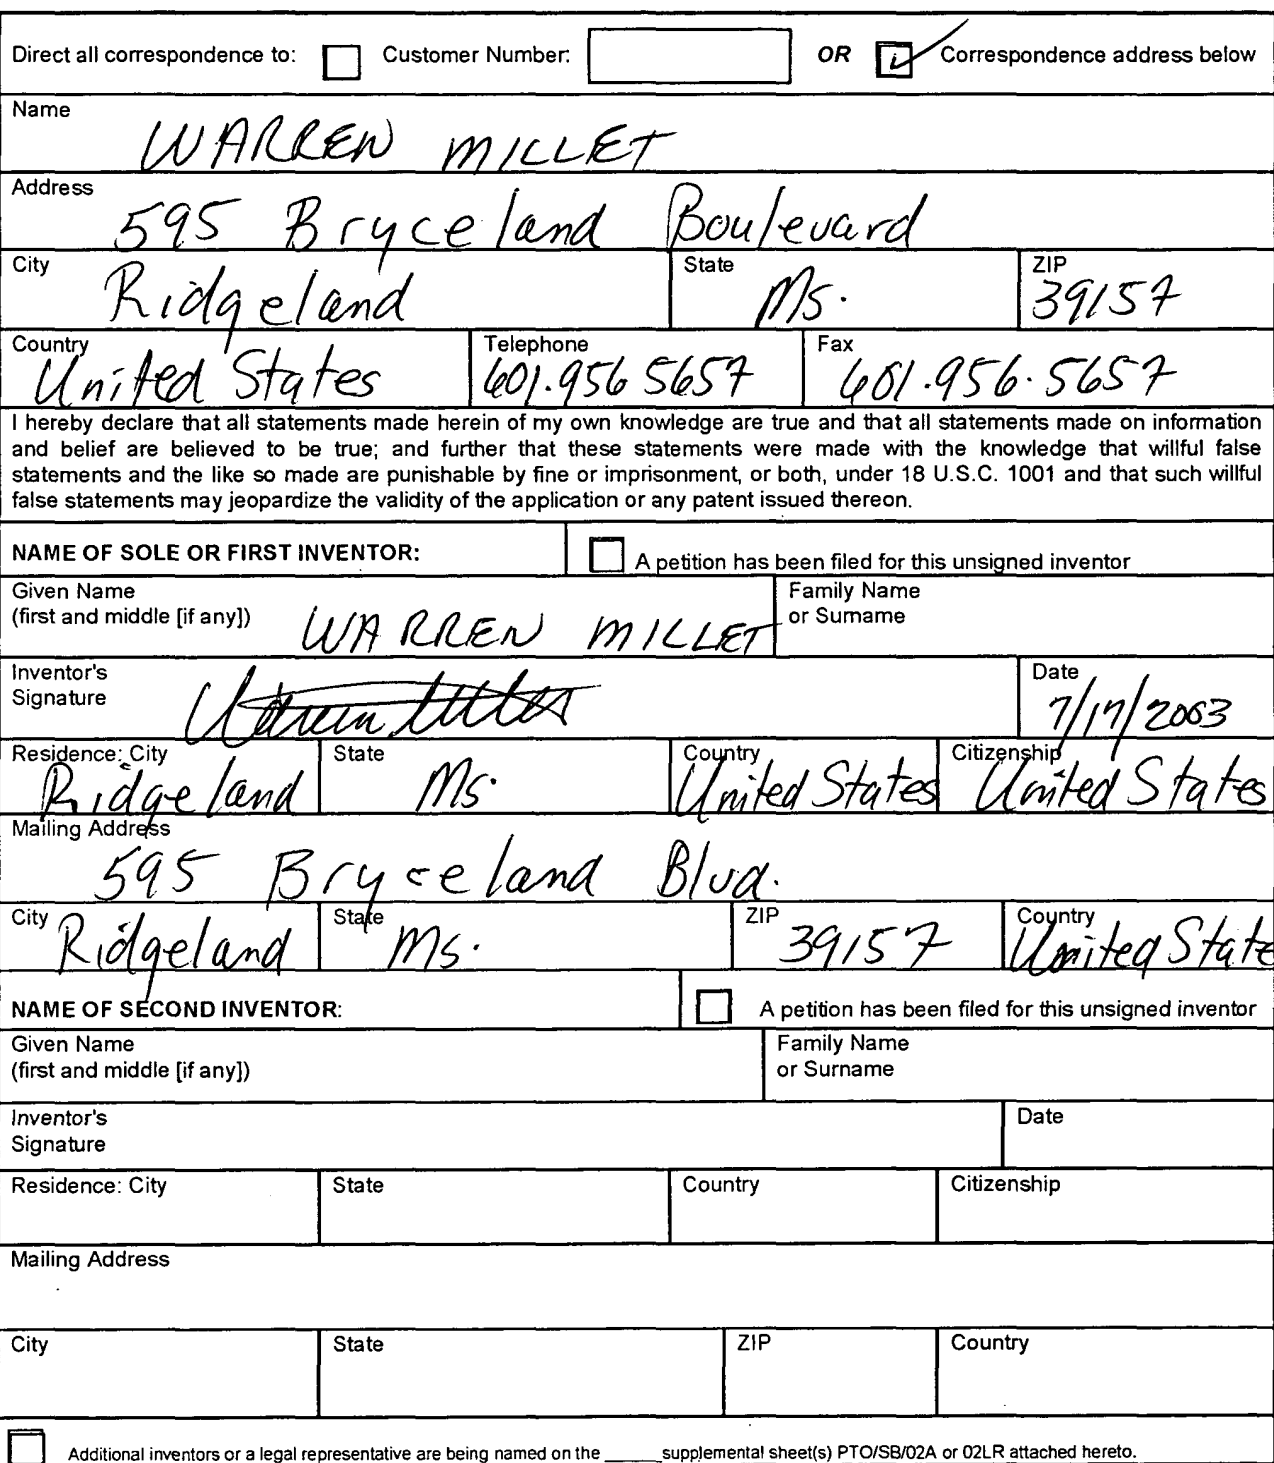 Direct all correspondence to: Customer Number: OR Correspondence address below
Name
WARREN MILLET
Address
595 Bryceland Boulevard
City State ZIP
Ridgeland Ms. 39157
Country Telephone Fax
United States 601.956 5657 601.956.5657
I hereby declare that all statements made herein of my own knowledge are true and that all statements made on information
and belief are believed to be true; and further that these statements were made with the knowledge that willful false
statements and the like so made are punishable by fine or imprisonment, or both, under 18 U.S.C. 1001 and that such willful
false statements may jeopardize the validity of the application or any patent issued thereon.
NAME OF SOLE OR FIRST INVENTOR: A petition has been filed for this unsigned inventor
Given Name Family Name
(first and middle [if any]) WARREN MILLET or Surname
Inventor's Date
Signature 7/17/2003
Residence: City State Country Citizenship
Ridgeland Ms. United States United States
Mailing Address
595 Bryceland Blvd.
City State ZIP Country
Ridgeland Ms. 39157 United State
NAME OF SECOND INVENTOR: A petition has been filed for this unsigned inventor
Given Name Family Name
(first and middle [if any]) or Surname
Inventor's Date
Signature
Residence: City State Country Citizenship
Mailing Address
City State ZIP Country
Additional inventors or a legal representative are being named on the _____ supplemental sheet(s) PTO/SB/02A or 02LR attached hereto.